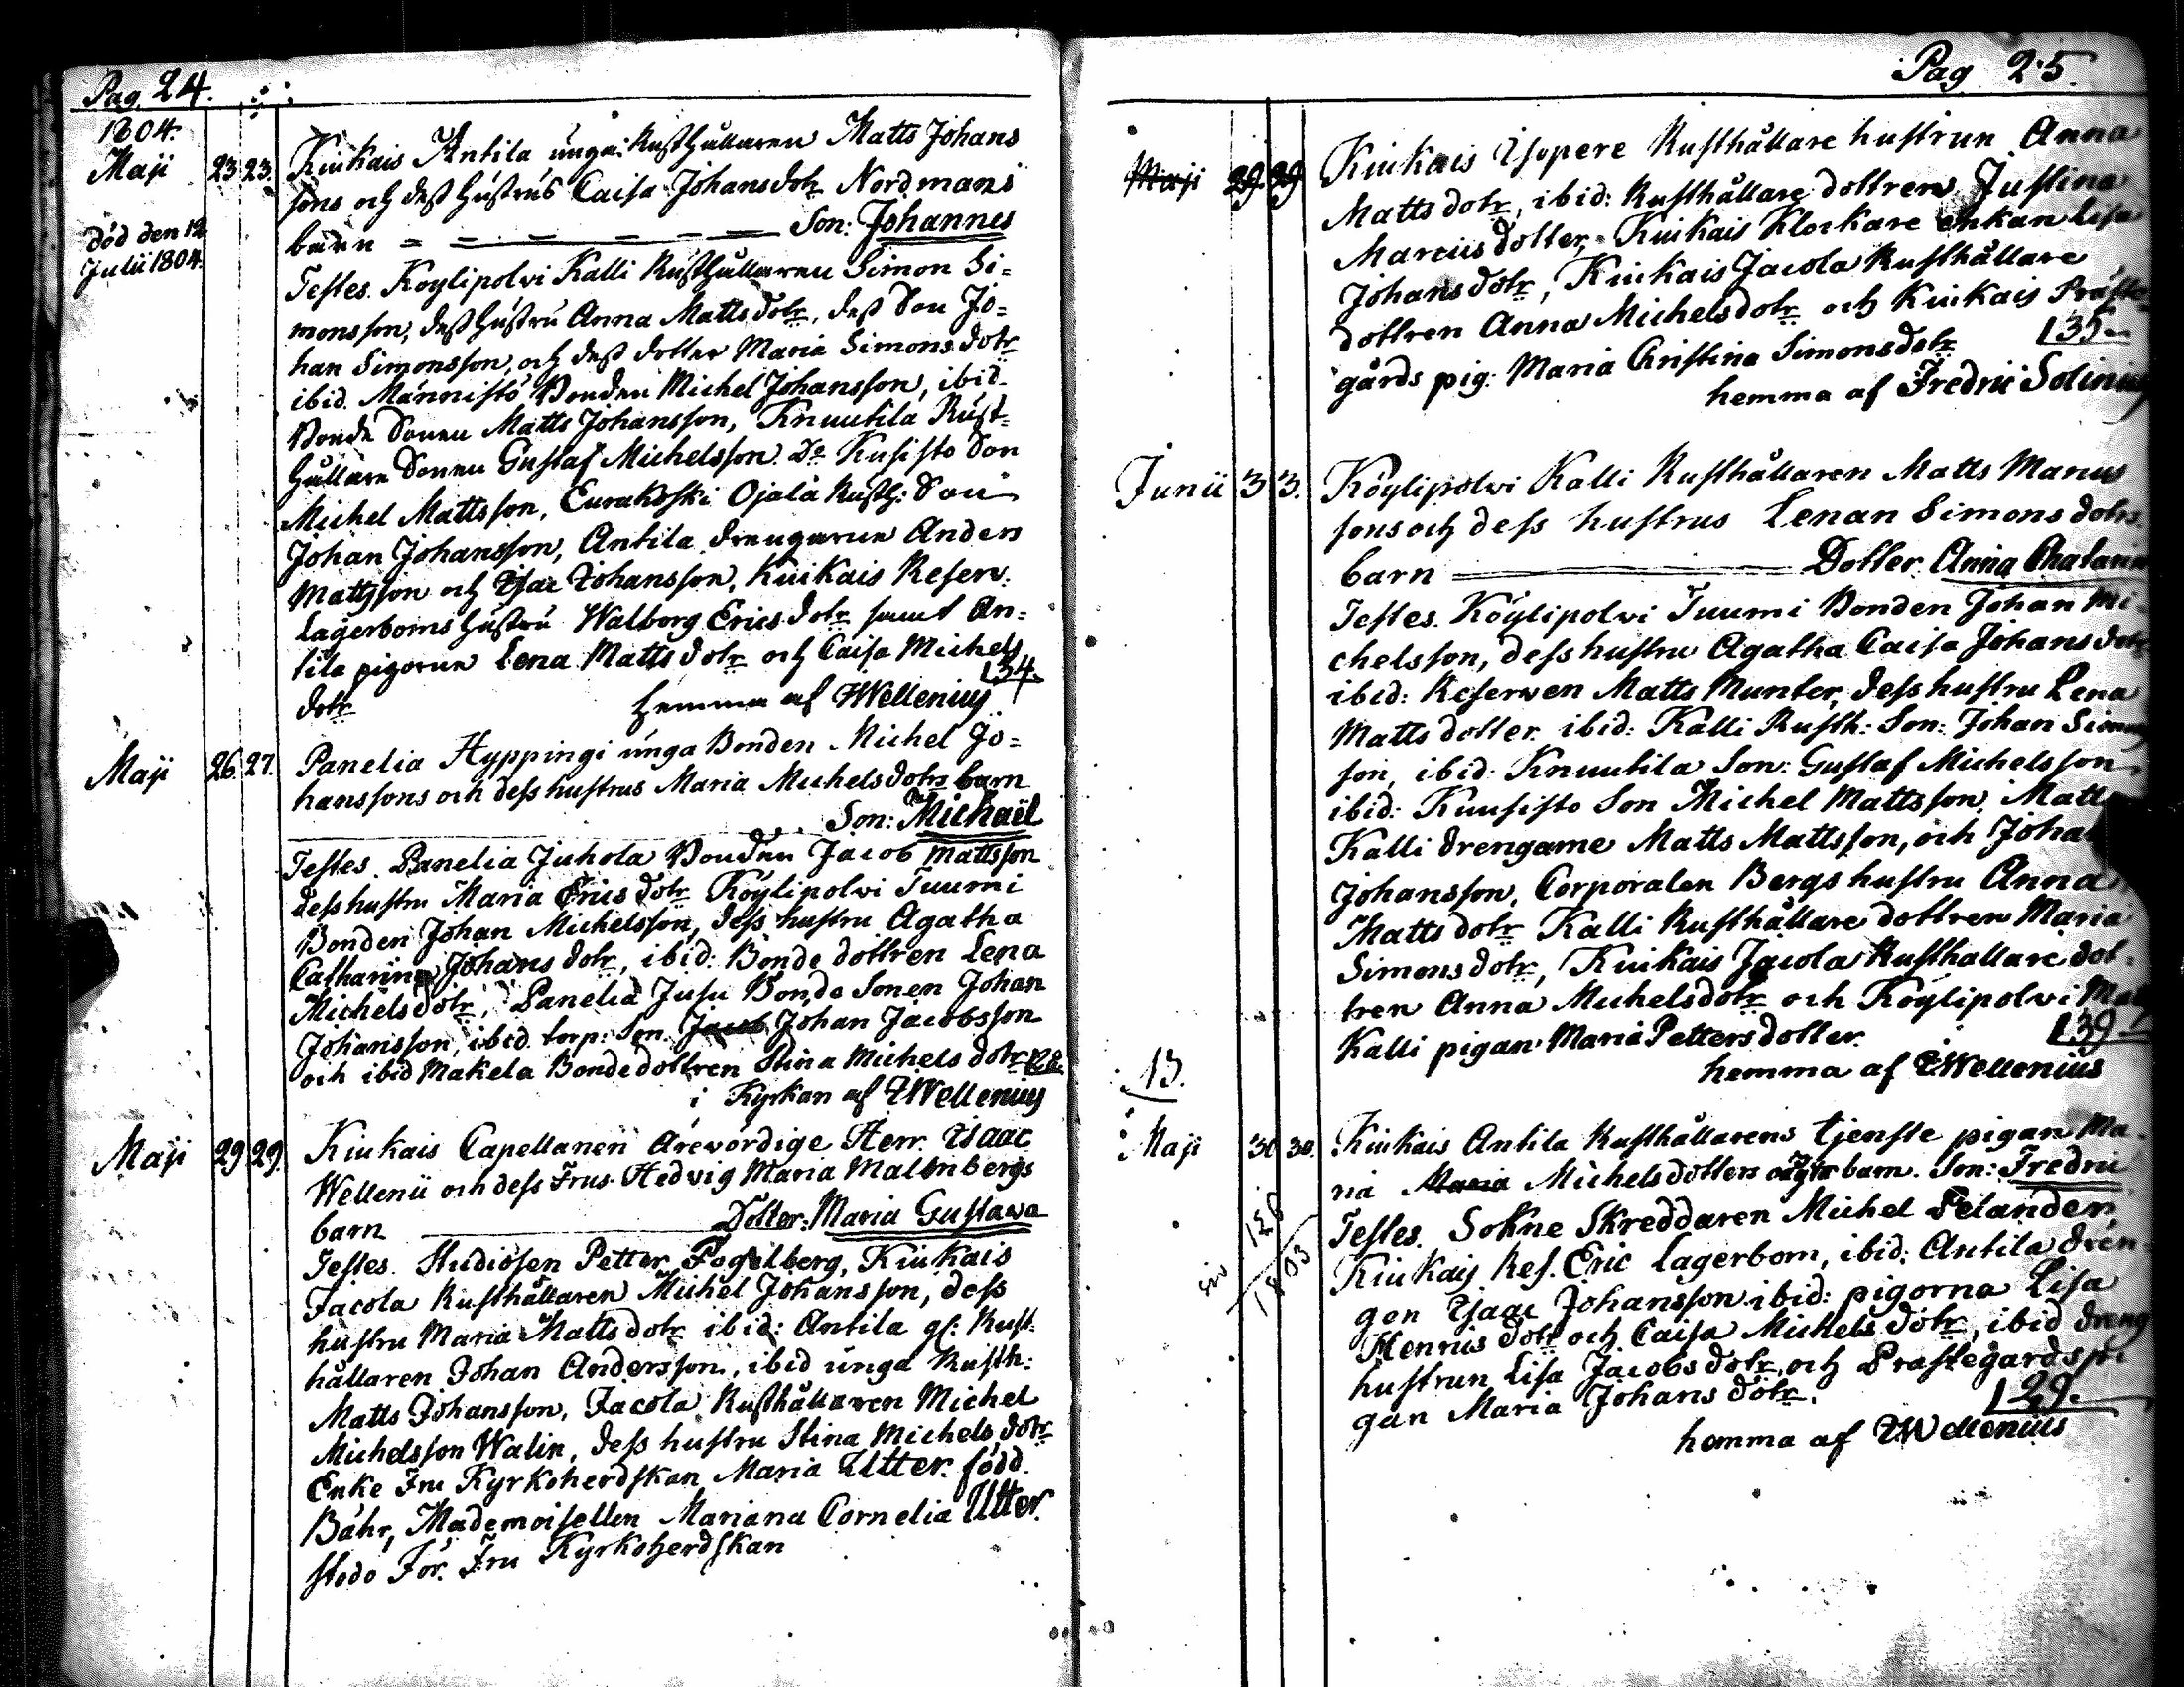 Pag. 24.
1804.
Maji 23 23. Kiukais Antila unga Rusthållaren Matts Johans
sons och dess hustrus Caisa Johansdotr Nordmans
barn = = = = = = Son: Johannes
död den 12
Julii 1804.
Testes. Köylipolvi Kalli Rusthållaren Simon Si=
monsson, dess hustru Anna Mattsdotr, dess Son Jo=
han Simonsson, och dess dotter Maria Simonsdotr
ibid. Männistö Bonden Michel Johansson, ibid.
Bonde Sonen Matts Johansson, Knuutila Rust=
hållare Sonen Gustaf Michelsson. Do Kusisto Son
Michel Mattsson, Eurakoski Ojala Rusth: Son
Johan Johansson, Antila drengarne Anders
Mattsson och Isac Johansson, Kiukais Reserv.
Lagerboms hustru Walborg Ericsdotr samt An=
tila pigorne Lena Mattsdotr och Caisa Michels
dotr 134.
hemma af IWellenius
Maji 26. 27. Panelia Hyppingi unga Bonden Michel Jo=
hanssons och dess hustrus Maria Michelsdotrs barn
Son: Michaël
Testes. Panelia Juhola Bonden Jacob Mattsson
dess hustru Maria Ericsdotr Köylipolvi Tuumi
Bonden Johan Michelsson, dess hustru Agatha
Catharina Johansdotr, ibid: Bonde dottren Lena
Michelsdotr, Panelia Jusu Bonde Sonen Johan
Johansson, ibid torp: Son. Jacob Johan Jacobsson
och ibid Makela Bondedottren Stina Michelsdotr
i Kyrkan af IWellenius
Maji 29 29. Kiukais Capellanen Ärewördige Herr. Isaac
Wellenii och dess Frus Hedvig Maria Malmbergs
barn Dotter: Maria Gustava
Testes. Studiosen Petter Fogelberg, Kiukais
Jacola Rusthållaren Michel Johansson, dess
hustru Maria Mattsdotr ibid: Antila gl: Rust:
hållaren Johan Andersson, ibid unga Rusth:
Matts Johansson, Jacola Rusthållaren Michel
Michelsson Walin, dess hustru Stina Michelsdotr
Enke Fru Kyrkoherdskan Maria Utter. född.
Bähr, Mademoisellen Mariana Cornelia Utter.
stodo För. Fru Kyrkoherdskan
Pag 25.
Maji 29. 29 Kiukais Isopere Rusthållare hustrun Anna
Mattsdotr, ibid: Rusthållare dottren Justina
Marcusdotter, Kiukais Klockare enkan Lisa
Johansdotr, Kiukais Jacola Rusthållare
dottren Anna Michelsdotr och Kiukais Präste
gårds pig: Maria Christina Simonsdotr 135
hemma af Fredric Solinius
Junii 3 3. Köylipolvi Kalli Rusthållaren Matts Marcus
sons och dess hustrus Lenan Simonsdotrs
barn Dotter. Anna Chatarina
Testes. Köylipolvi Tuumi Bonden Johan Mi
chelsson, dess hustru Agatha Caisa Johansdotr
ibid: Reserven Matts Munter, dess hustru Lena
Matts dotter. ibid: Kalli Rusth: Son: Johan Simons
son, ibid: Knuutila Son: Gustaf Michelsson
ibid: Kuusisto Son Michel Mattsson, Matts
Kalli drengarne Matts Mattsson, och Johan
Johansson, Corporalen Bergs hustru Anna
Mattsdotr Kalli Rusthållare dottren Maria
Simonsdotr, Kiukais Jacola Rusthållare dot=
tren Anna Michelsdotr och Köylipolvi
Kalli pigan Maria Pettersdotter. 139
hemma af IWellenius
13.
Maji 30 30. Kiukais Antila Rusthållarens tjenste pigan Ma
ria Maria Michelsdotters oägta barn. Son: Fredric
Testes. Sokne Skreddaren Michel Selander,
Kiukais Res. Eric Lagerbom, ibid: Antila dren
gen Isaac Johansson ibid: pigorna Lisa
Henricsdotr och Caisa Michelsdotr, ibid dreng
hustrun Lisa Jacobsdotr, och Prastegårdspi
gan Maria Johansdotr. 129.
hemma af IWellenius